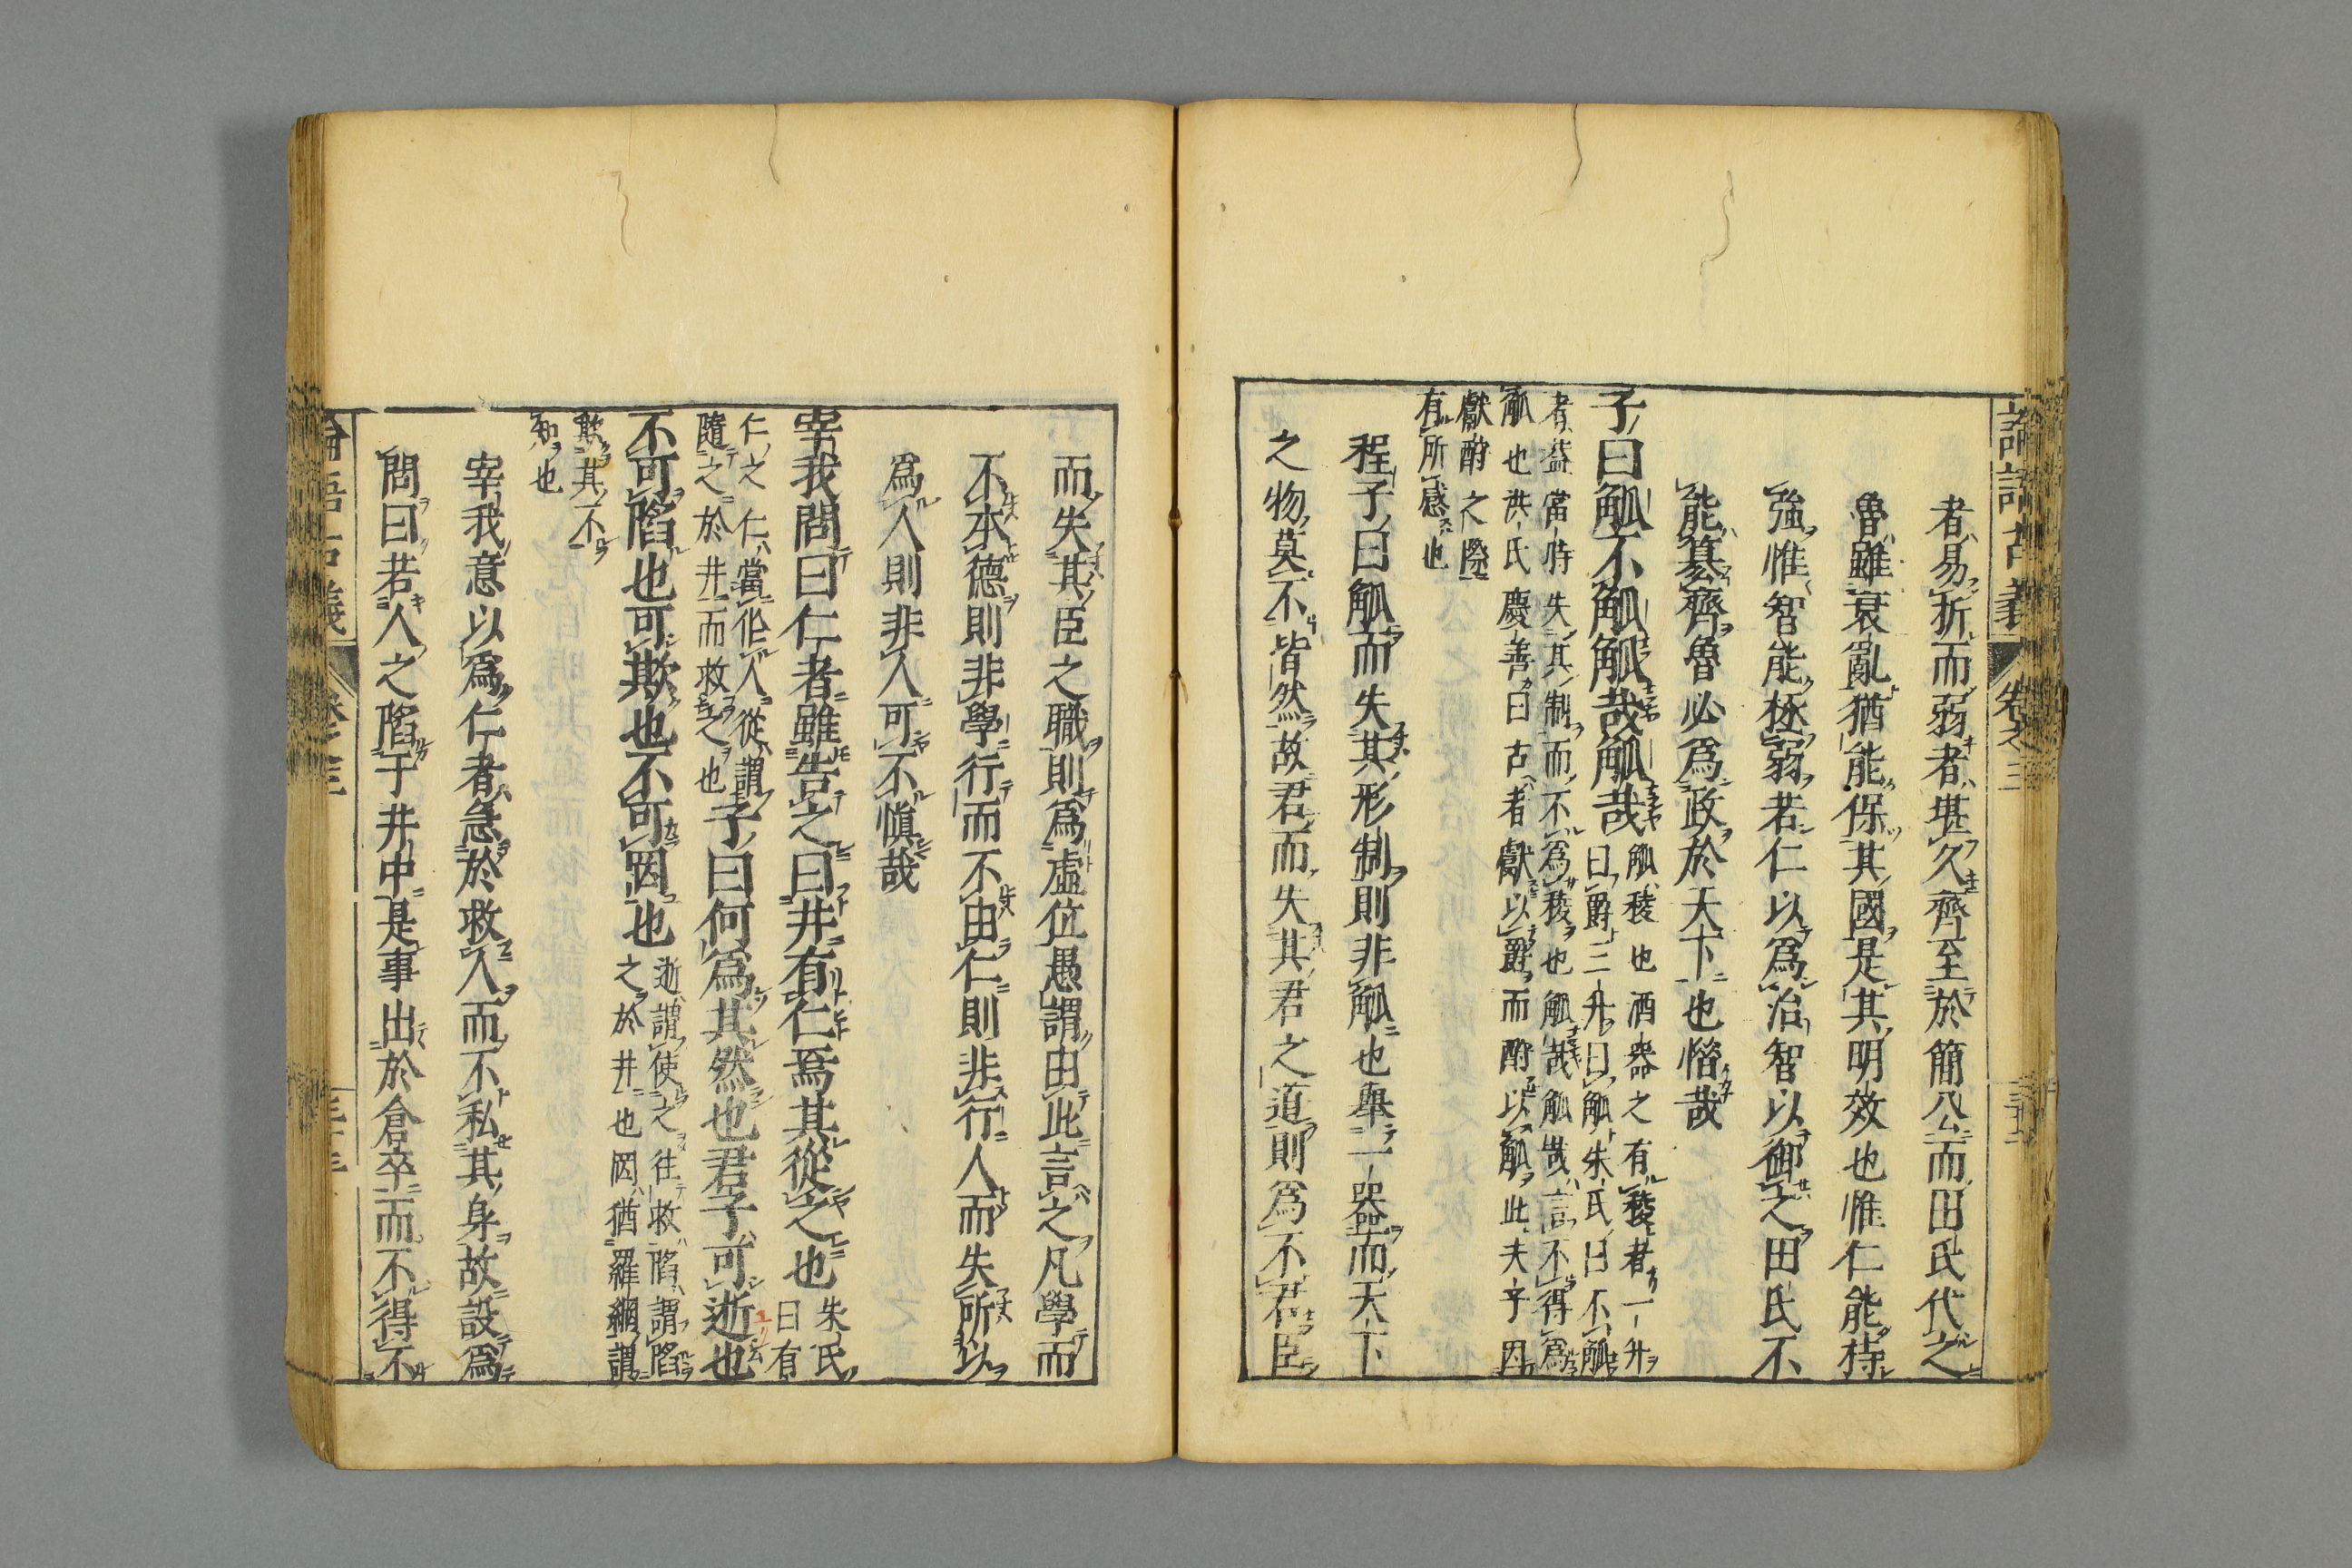 論語古義 卷之三
者易折而弱者堪久齊至於簡公而田氏代之
魯雖衰亂猶能保其國是其明效也惟仁能持
強惟智能拯弱若仁以爲治智以御之田氏不
能簒齊魯必爲政於天下也惜哉
子曰觚不觚觚哉觚哉
觚稜也酒器之有稜者一升
曰爵二升曰觚朱氏曰不觚
者蓋當時失其制而不爲稜也觚哉觚哉言不得爲
觚也洪氏慶善曰古者獻以爵而酌以觚此夫子因
獻酌之際
有所感也
程子曰觚而失其形制則非觚也舉一器而天下
之物莫不皆然故君而失其君之道則爲不君臣
而失其臣之職則爲虛位愚謂由此言之凡學而
不本德則非學行而不由仁則非行人而失所以
爲人則非人可不愼哉
宰我問曰仁者雖告之曰井有仁焉其從之也
朱氏
曰有
仁之仁當作人從謂
隨之於井而救之也
子曰何爲其然也君子可逝也
不可陷也可欺也不可罔也
逝謂使之往救陷謂陷
之於井也罔猶羅網謂
欺其不
知也
宰我意以爲仁者急於救人而不私其身故設爲
問曰若人之陷于井中是事出於倉卒而不得不
論語古義 卷之三